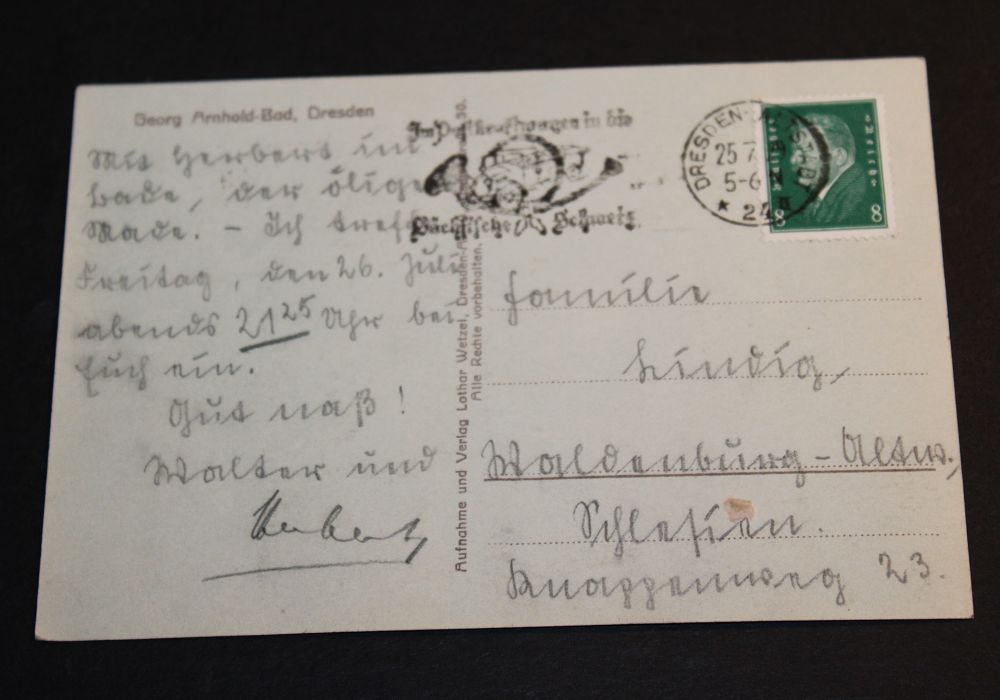 Georg Arnhold-Bad, Dresden
Mit Herbert im
Bade, der ölige
Made. – Ich treffe
Freitag, den 26. Juli
abends 21 25 Uhr bei
Euch ein.
Gut naß!
Walter und
Herbert
Aufnahme und Verlag Lothar Wetzel, Dresden-A 30.
Alle Rechte vorbehalten.
Im Postkraftwagen in die
Sächsische Schweiz
DRESDEN-ALTSTADT
25 7
5-6
* 24
Deutsches Reich
8 8
Familie
Lindig,
Waldenburg-Altw.,
Schlesien.
Knappenweg 23.